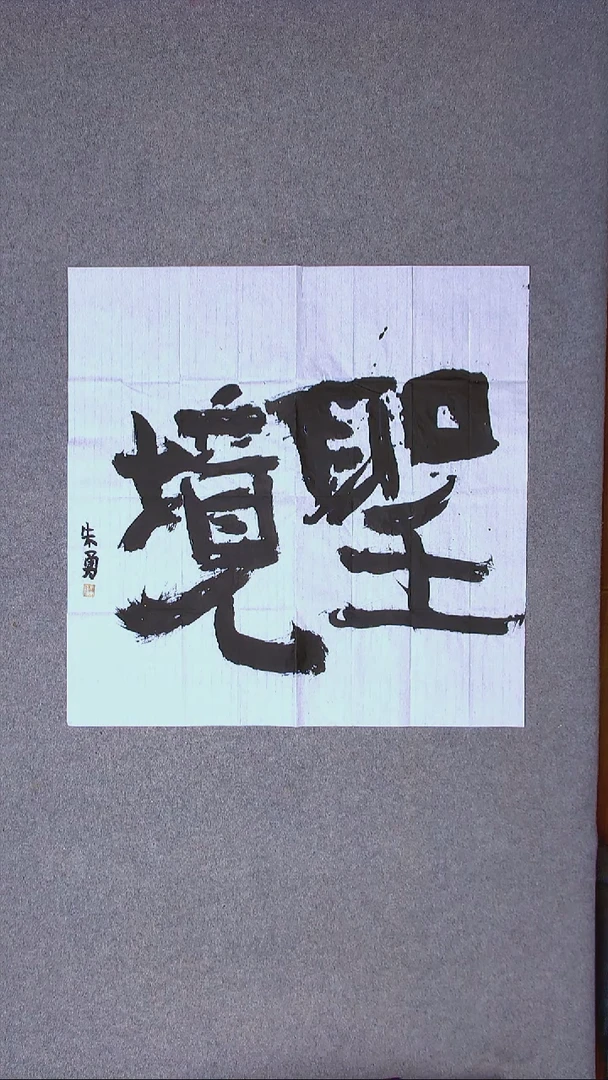 聖境
朱勇